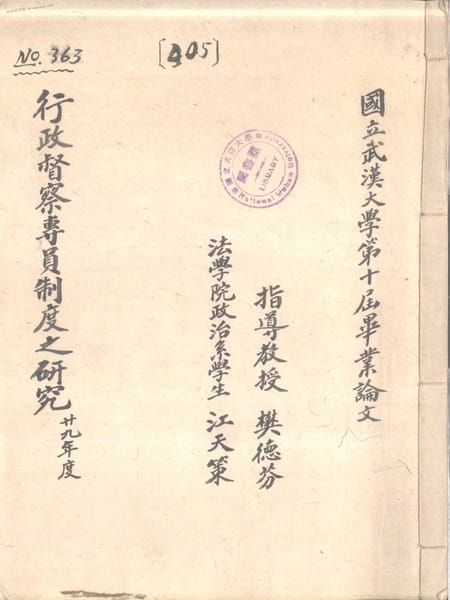 國立武漢大學第十屆畢業論文
指導教授 樊德芬
法學院政治系學生 江天策
行政督察專員制度之研究 廿九年度
No. 363
[405]
國立武漢大學
圖書館
LIBRARY
National Wuhan University